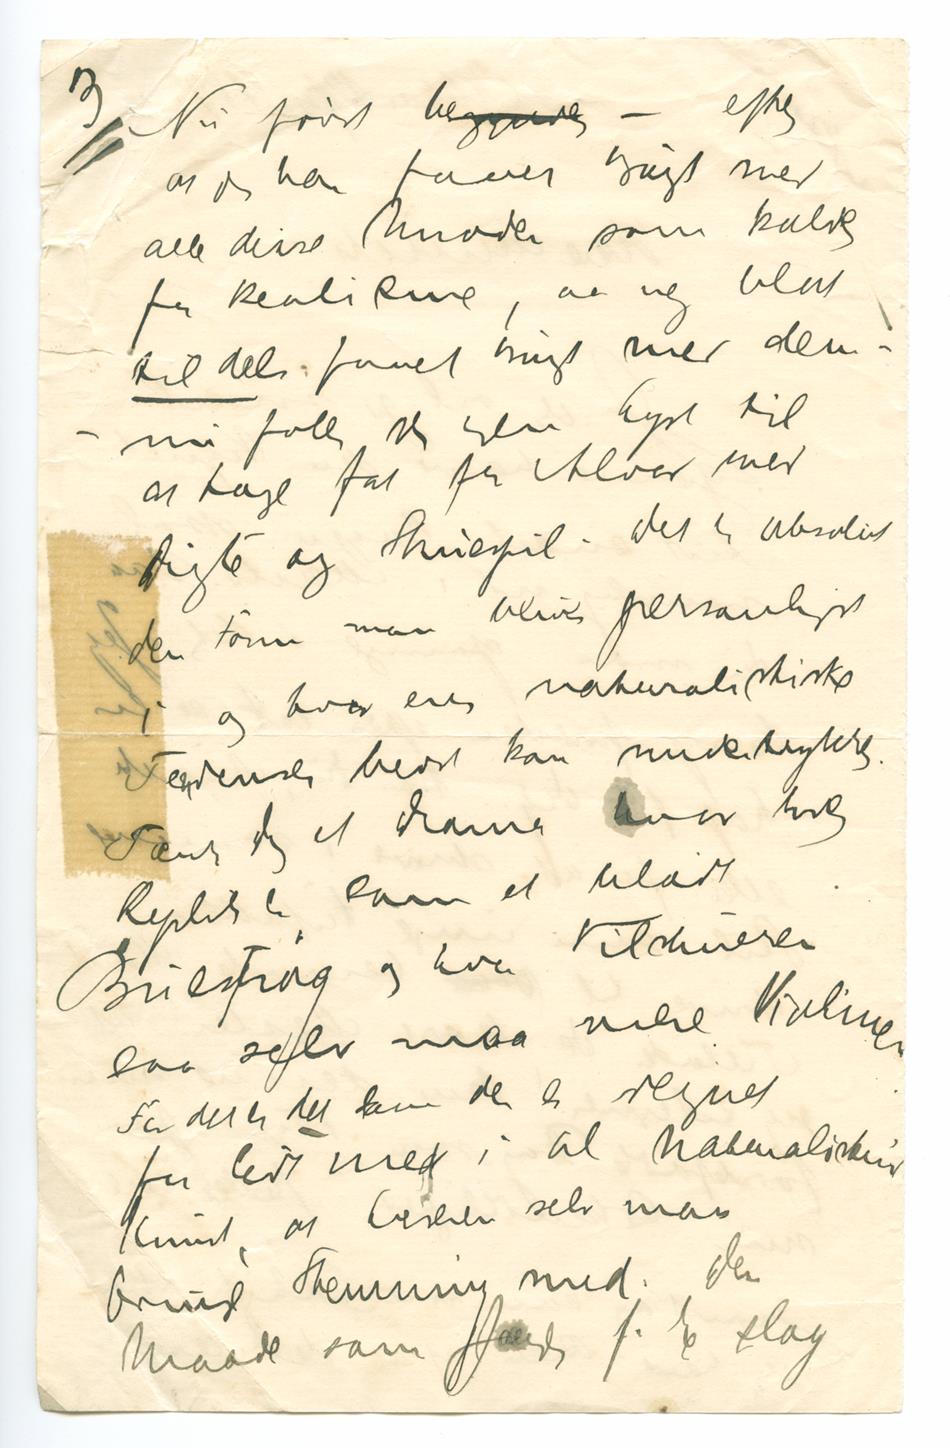 3
Nu først begynder – efter
at jeg har faaet brugt med
alle disse Maader som kaldes
for Realisme, aa jeg blot
til dels faaet brugt med dem –
– nu faller det igen Lyst til
at tage fat for Alvor med
Digte og Skuespil. Det er absolut
den Form man bliver personligst
i og hvor ens naturalistiske
Tendenser bedst kan
Tænk dig et drama hvor hver
Replik er som et blødt
Buestrøg og hvor Tilskueren
saa selv maa være Violinen
For det er det som der er regnet
for lidt med i al Naturalistisk
Kunst, at Læseren selv maa
bringe Stemning med. Den
Maade som for de slag